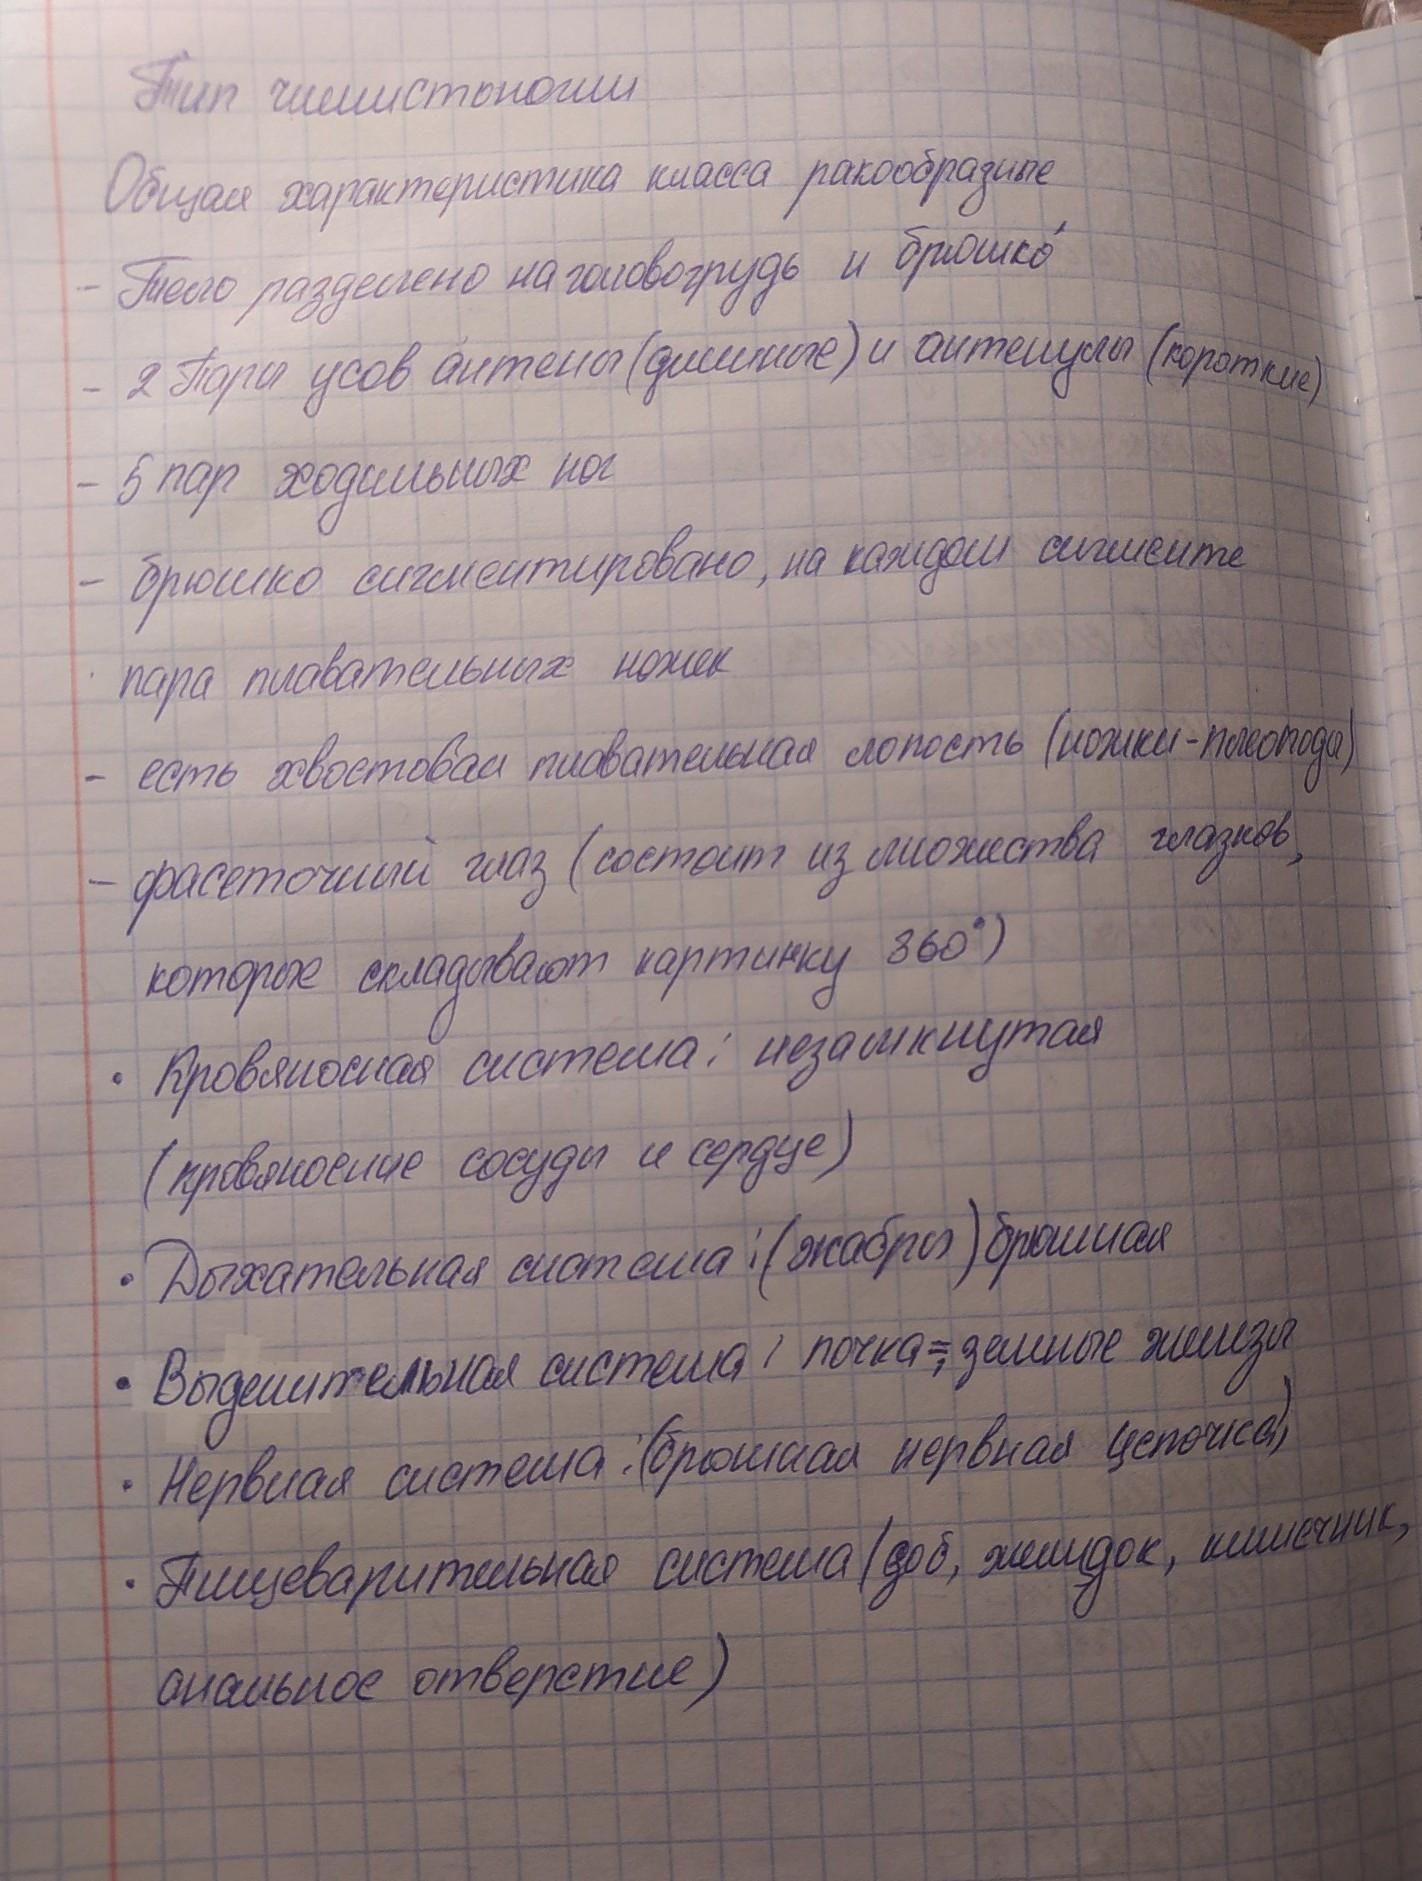 Тип членистоногии
Общая характеристика класса ракообразные
- Тело разделено на головогрудь и брюшко
- 2 Пары усов антены (длинные) и антенулы (короткие)
- 5 пар ходильных ног
- брюшко сигментировано, на каждом сигменте
пара плавательных ножек
- есть хвостовая плавательная лопость (ножки-плеопода)
- фасеточный глаз (состоит из множества глазков,
которые складывают картинку 360°)
• Кровяносная система: незамкнутая
(кровяносные сосуды и сердце)
• Дыхательная система: (жабры) брюшная
• Выделительная система: почка=, земные железы
• Нервная система: (брюшная нервная цепочка)
• Пищеварительная система (зоб, желудок, кишечник,
анальное отверстие)